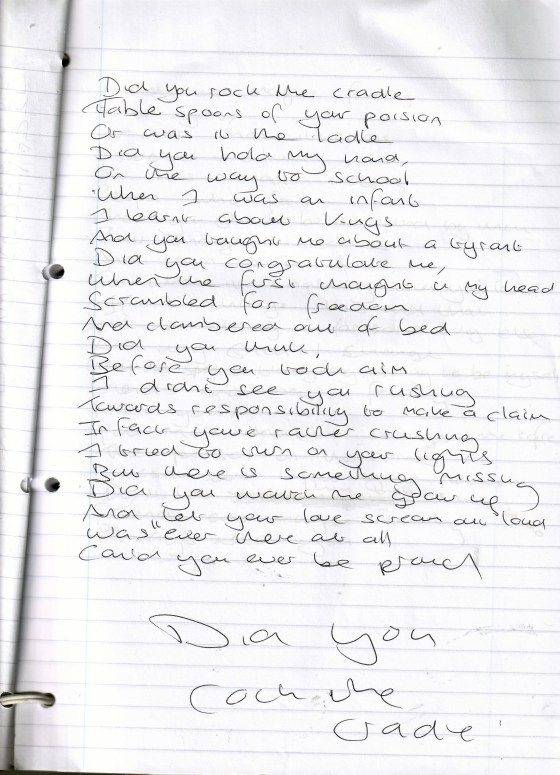 Did you rock the cradle
Table spoons of your poision
Or was it the ladle
Did you hold my hand,
On the way to school
When I was an infant
I learnt about kings
And you taught me about a tyrant
Did you congratulate me,
When the first thought in my head
Scrambled for freedom
And clambered out of bed
Did you think,
Before you took aim
I didnt see you rushing
Towards responsibility to make a claim
In fact youre rather crushing
I tried to turn on your lights
But there is something missing
Did you watch me grow up
And let your love scream out loud
Was ever there at all
Could you ever be proud
Did you
rock the
cradle